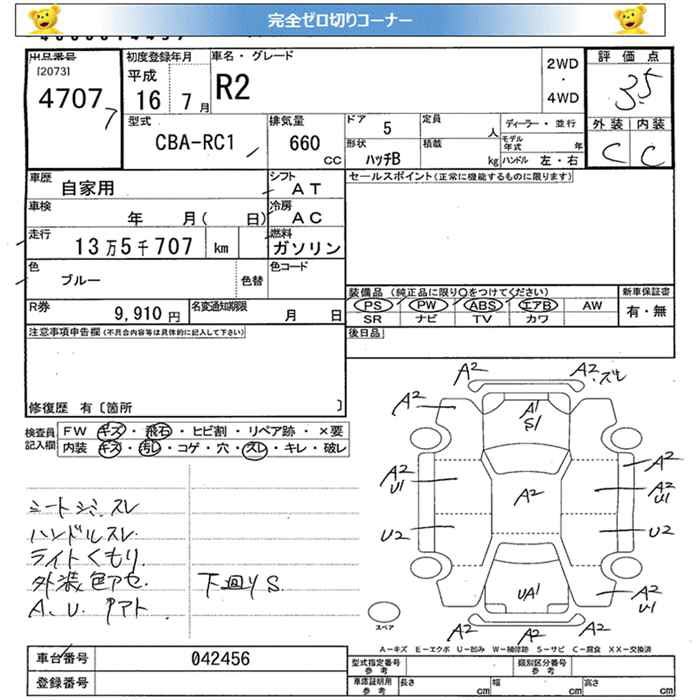 完全ゼロ切りコーナー
出品番号
[2073]
4707 7
初度登録年月
平成
16 7 月
車名・グレード
R2
2WD
・
4WD
評価点
3.5
外装 内装
C C
型式
CBA-RC1
排気量
660
CC
ドア 5
形状
ハッチB
定員 人
積載 kg
ディーラー・並行
モデル年式 年
ハンドル 左・右
車歴
自家用
シフト
AT
車検
年 月( 日)
冷房
AC
走行
13万5千707 km
燃料
ガソリン
色
ブルー
色替
色コード
R券
9,910円
名変通知期限
月 日
注意事項申告欄(不具合内容等は具体的に記入して下さい)
修復歴 有〔箇所 〕
セールスポイント(正常に機能するものに限ります)
装備品 (純正品に限り○をつけてください)
PS PW ABS エアB AW
SR ナビ TV カワ
新車保証書
有・無
後日品
検査員記入欄
FW キズ・飛石・ヒビ割・リペア跡・×要
内装 キズ・汚レ・コゲ・穴・スレ・キレ・破レ
シートシミ、スレ
ハンドルスレ
ライトくもり.
外装色アセ.
A. U. 下回りS.
A2 A2・ズレ
A2 A1
S1
A2
U1 A2 A2
A2
U1
U2 U2
UA1 A2
U1
A2 A2
スペア
A−キズ E−エクボ U−凹み W−補修跡 S−サビ C−腐食 XX−交換済
車台番号
042456
登録番号
型式指定番号
参考
類別区分番号
参考
車庫証明用
参考
長さ cm 幅 cm 高さ cm